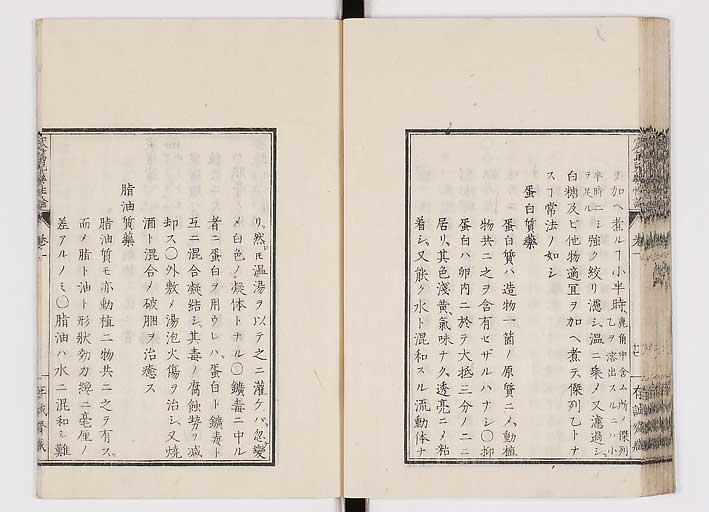 ヲ加ヘ煮ルヿ小半時、鹿角中含ム所ノ傑列
乙ヲ溶出スルニハ小
半時ニシ
ヲ足ル
強ク絞リ濾シ、温ニ乗メ又濾過シ、
白糖及ビ他物適宜ヲ加ヘ煮テ傑列乙トナ
スヿ常法ノ如シ
蛋白質藥
蛋白質ハ造物一箇ノ原質ニメ、動植
物共ニ之ヲ含有セザルハナシ〇抑
蛋白ハ卵内ニ於テ大抵三分ノ二ニ
居リ、其色淺黄、氣味ナク透亮ニメ粘
着シ、又能ク水ト混和スル流動体ナ
リ、然ㇾ𪜈温湯ヲ以テ之ニ灌ケバ、忽變
メ白色ノ凝体トナル〇鑛毒ニ中ル
者ニ蛋白ヲ用ウレハ、蛋白ト鑛毒ト
互ニ混合凝結シ、其毒ノ腐蝕勢ヲ減
却ス〇外敷メ湯泡火傷ヲ治シ、又燒
酒ト混合メ破䐃ヲ治癒ス
脂油質藥
脂油質モ亦動植二物共ニ之ヲ有ス、
而メ脂ト油ト形狀効力纔ニ毫厘ノ
差アルノミ〇脂油ハ水ニ混和シ難
卷一